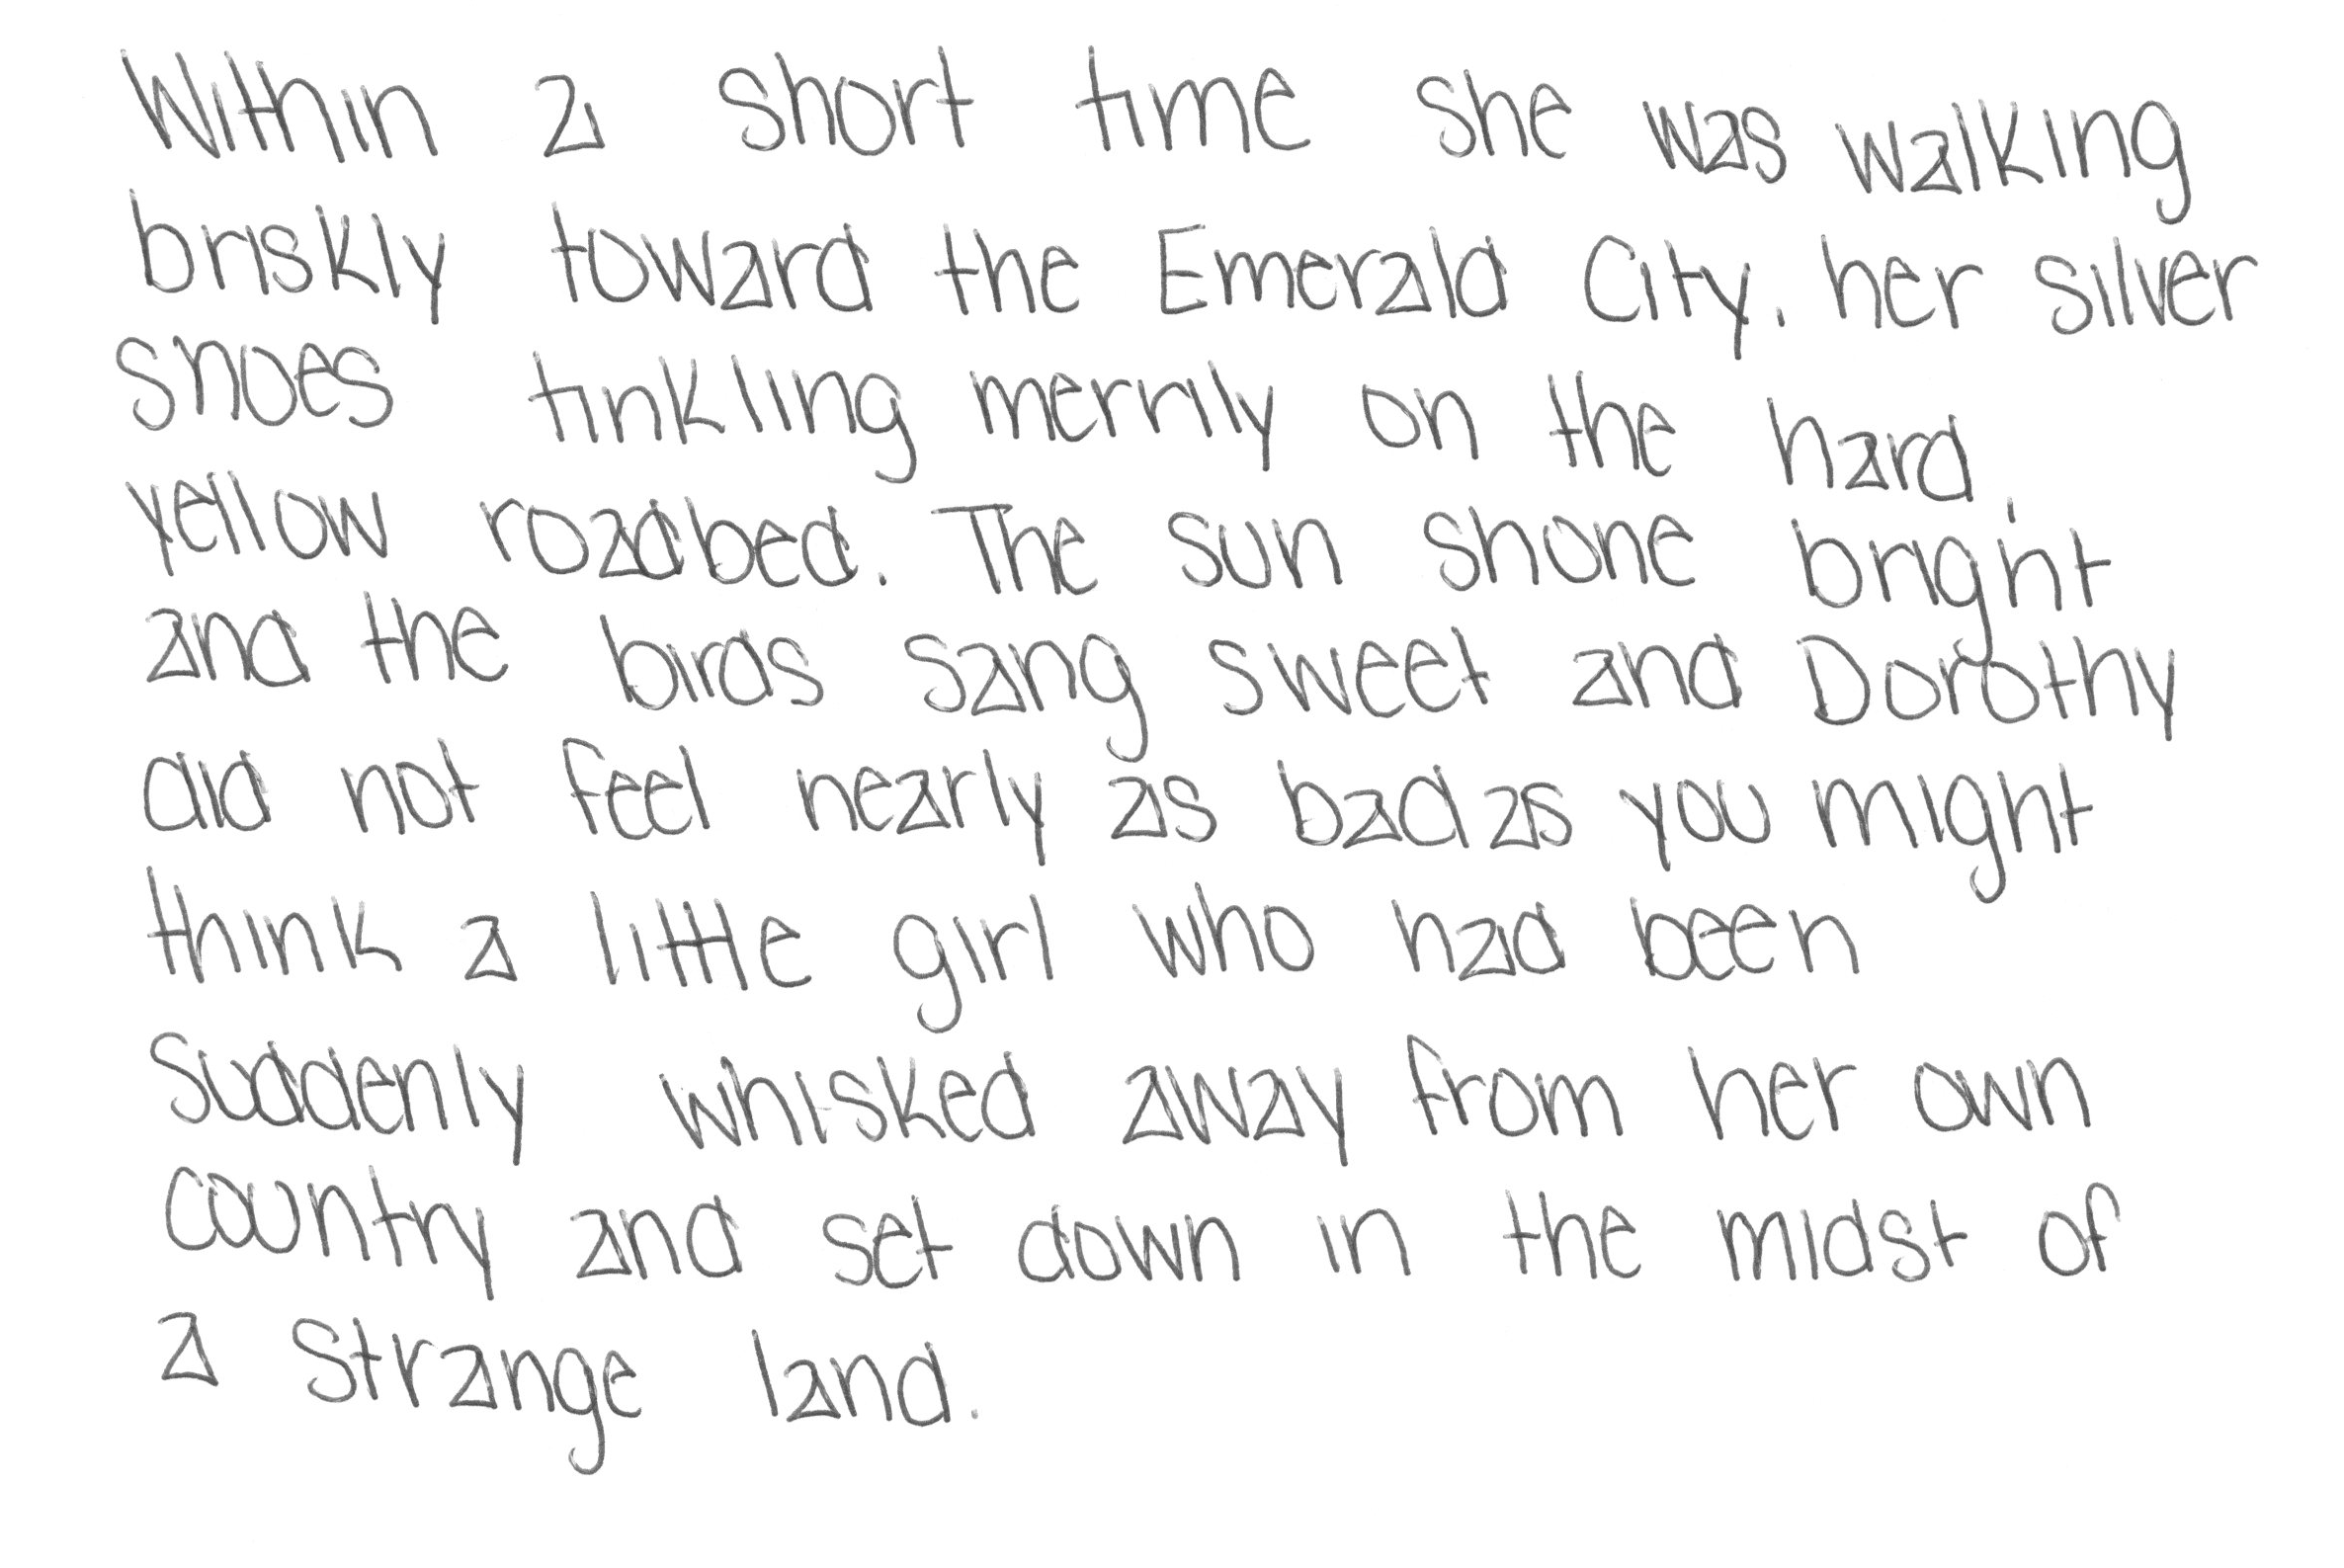 Within a short time she was walking
briskly toward the Emerald City, her silver
shoes tinkling merrily on the hard
yellow roadbed. The sun shone bright
and the birds sang sweet and Dorothy
did not feel nearly as bad as you might
think a little girl who had been
suddenly whisked away from her own
country and set down in the midst of
a strange land.